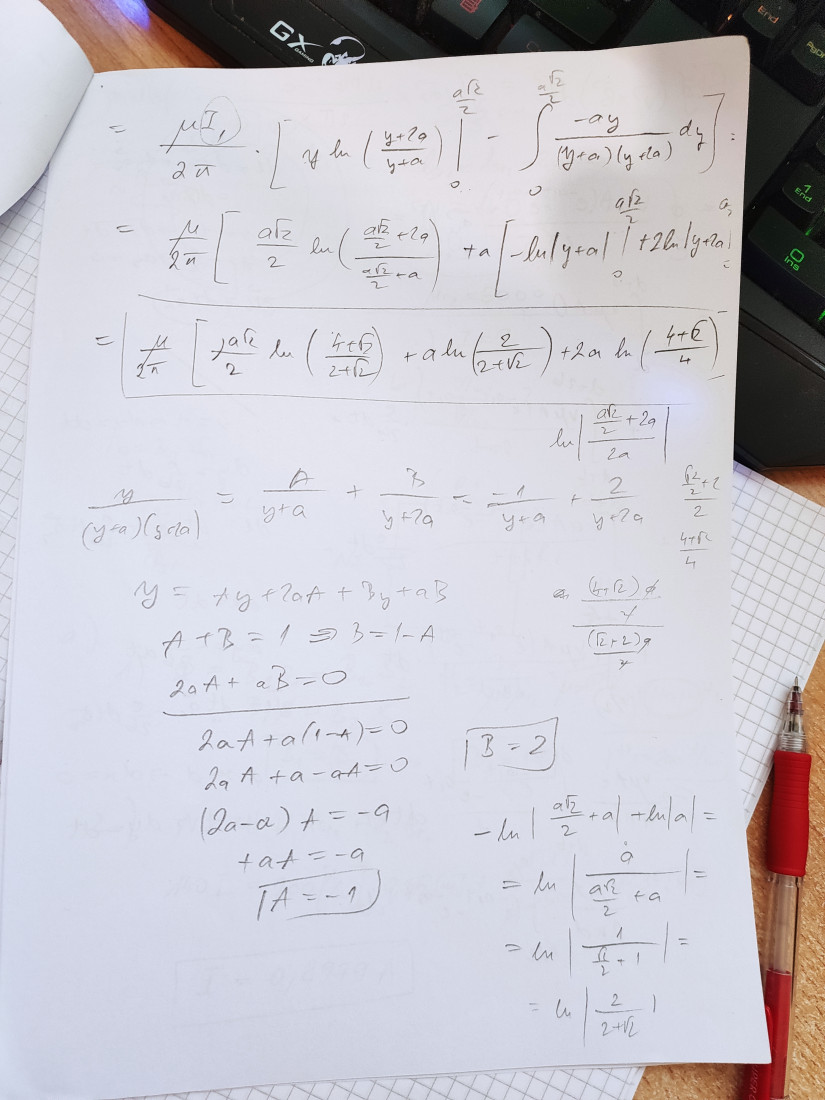 GX
GAMING
End
PgDn
1
End
0
Ins
= μI₁/2π · [ y ln ( (y+2a)/(y+a) ) |₀^(a√2/2) - ∫₀^(a√2/2) -ay/((y+a)(y+2a)) dy ] =
= μ/2π [ a√2/2 ln ( (a√2/2 + 2a)/(a√2/2 + a) ) + a [ -ln|y+a| |₀^(a√2/2) + 2ln|y+2a| =
= μ/2π [ a√2/2 ln ( (4+√2)/(2+√2) ) + a ln ( 2/(2+√2) ) + 2a ln ( (4+√2)/4 )
ln | (a√2/2 + 2a)/2a |
y/((y+a)(y+2a)) = A/(y+a) + B/(y+2a) = -1/(y+a) + 2/(y+2a)
(√2/2 + 2)/2
(4+√2)/4
y = Ay + 2aA + By + aB
((4+√2)a/2)/((√2+2)a/2)
A + B = 1 ⇒ B = 1 - A
2aA + aB = 0
2aA + a(1-A) = 0
B = 2
2aA + a - aA = 0
(2a-a) A = -a
+aA = -a
A = -1
-ln | a√2/2 + a | + ln|a| =
= ln | a/(a√2/2 + a) | =
= ln | 1/(√2/2 + 1) | =
= ln | 2/(2+√2) |